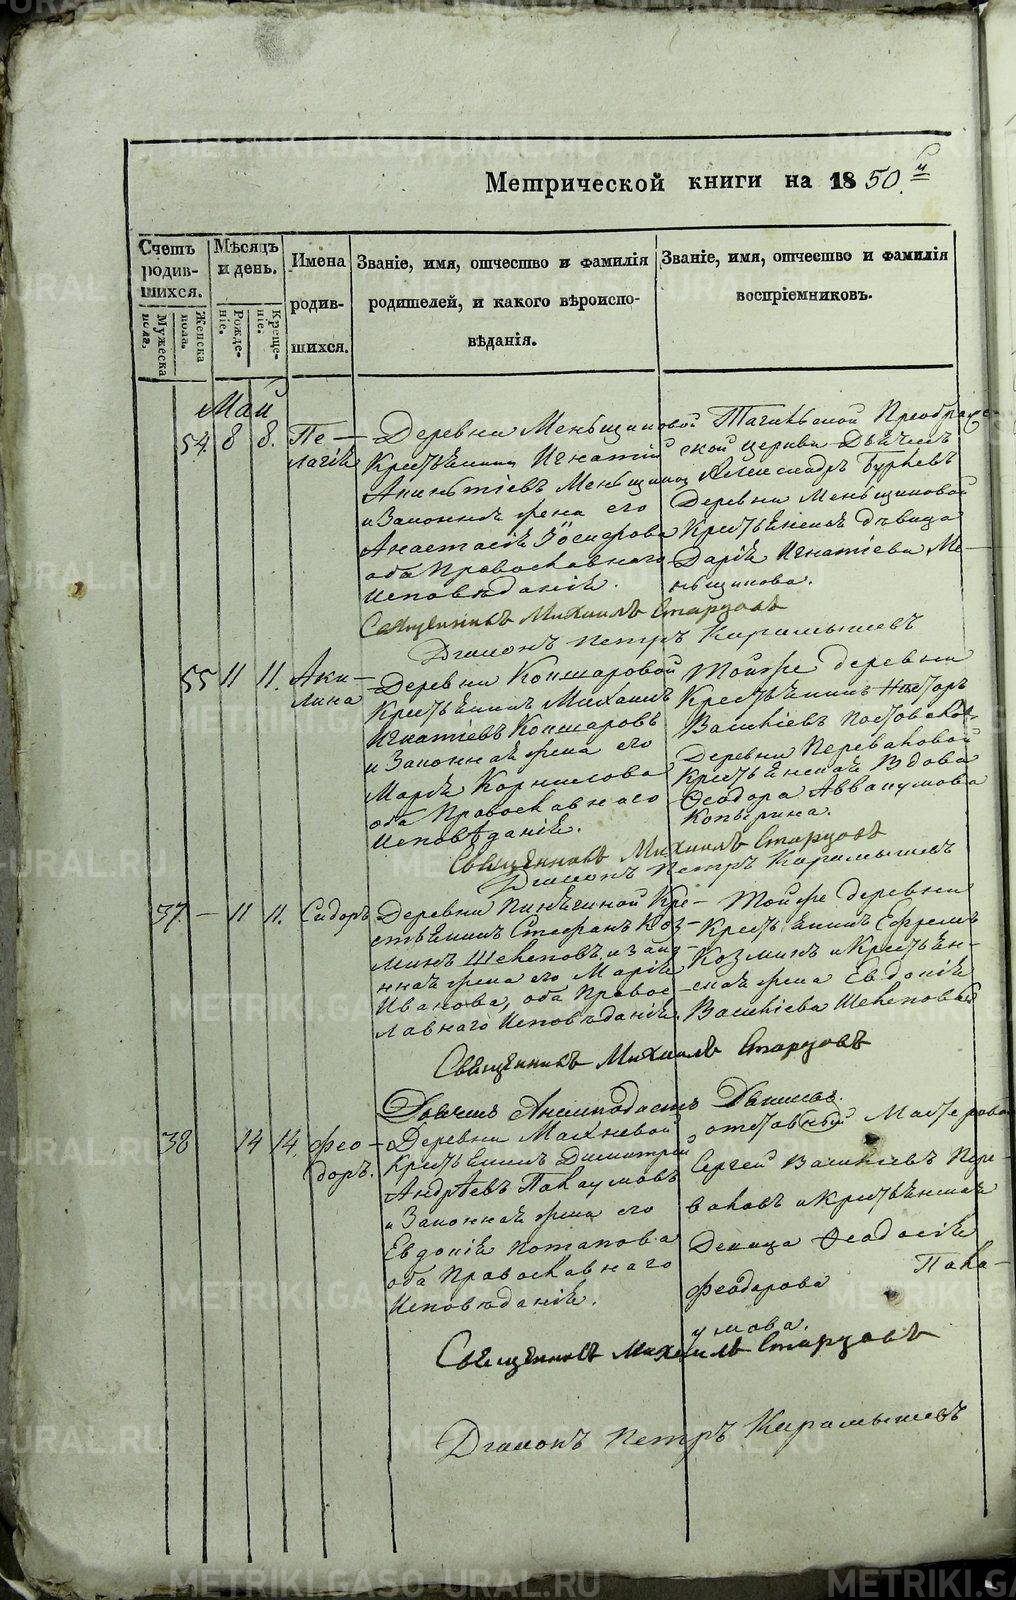 Метрической книги на 1850.й
Счетъ родившихся.
Мѣсяцъ и день.
Имена родившихся.
Званіе, имя, отчество и фамилія родителей, и какого вѣроисповѣданія.
Званіе, имя, отчество и фамилія воспріемниковъ.
Мужеска пола.
Женска пола.
Рожденіе.
Крещеніе.
Май
54. 8 8. Пелагія
Деревни Меньщиковой
Крестьянинъ Игнатій
Меньщиковъ
и Законная жена его
Анастасія Іосифова
оба Православнаго
Исповѣданія.
Преображенской церкви Дьячекъ
Александръ
Деревни Меньщиковой
Крестьянская дѣвица
Дарія Игнатіева Меньщикова.
Священникъ Михаилъ Старцовъ
Діаконъ Петръ Карамышевъ
55 11 11. Акилина
Деревни Кокшаровой
Крестьянинъ Михаилъ
Игнатіевъ Кокшаровъ
и Законная жена его
Марія Корнилова
оба Православнаго
Исповѣданія.
Тойже деревни
Крестьянинъ
Васильевъ
Деревни Переваловой
Крестьянская Вдова
Ѳеодора Аввакумова
Копырина.
Священникъ Михаилъ Старцовъ
Діаконъ Петръ Карамышевъ
37 — 11 11. Сидоръ
Деревни Пинягиной Крестьянинъ Стефанъ Козминъ Шелеповъ, и законная жена его Марія
Иванова, оба Православнаго Исповѣданія.
Тойже деревни
Крестьянинъ Ефремъ
Козминъ и Крестьянская жена Евдокія
Васильева Шелеповы
Священникъ Михаилъ Старцовъ
Дьячекъ
38 14 14. Феодоръ.
Деревни Махневой
Крестьянинъ Димитрій
Андрѣевъ Пахаумовъ
и Законная жена его
Евдокія Потапова
оба Православнаго
Исповѣданія.
отставный Мастеровой
Сергей Васильевъ Переваловъ и Крестьянская
Девица Ѳеодосія
Феодорова
Священникъ Михаилъ Старцовъ
Діаконъ Петръ Карамышевъ
METRIKI.GASO-URAL.RU